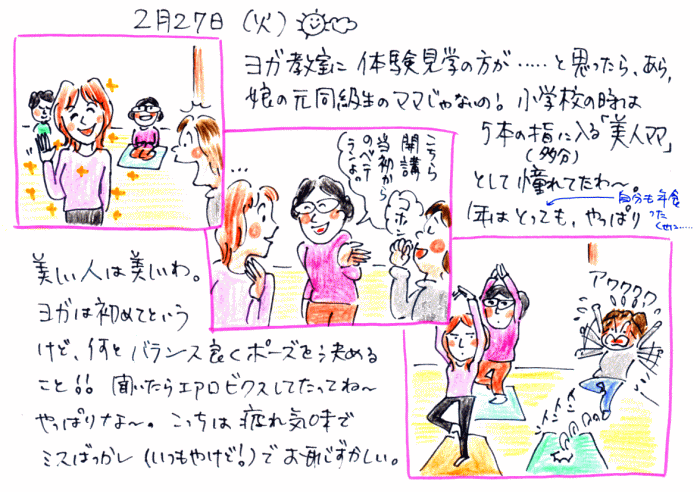 2月27日（火）
ヨガ教室に体験見学の方が……と思ったら、あら、
娘の元同級生のママじゃないの！小学校の時は
5本の指に入る「美人ママ」
（多分）
として憧れてたわ〜。
自分も年食
った
くせに……
1年はとっても、やっぱり
こちら
開講
当初から
のベテ
ランよ。
エホン
美しい人は美しいわ。
ヨガは初めてという
けど、何とバランス良くポーズを決める
こと!! 聞いたらエアロビクスしてたってね〜
やっぱりな〜。こっちは疲れ気味で
ミスばっかし（いつもやけど！）でお恥ずかしい。
アワワワワ